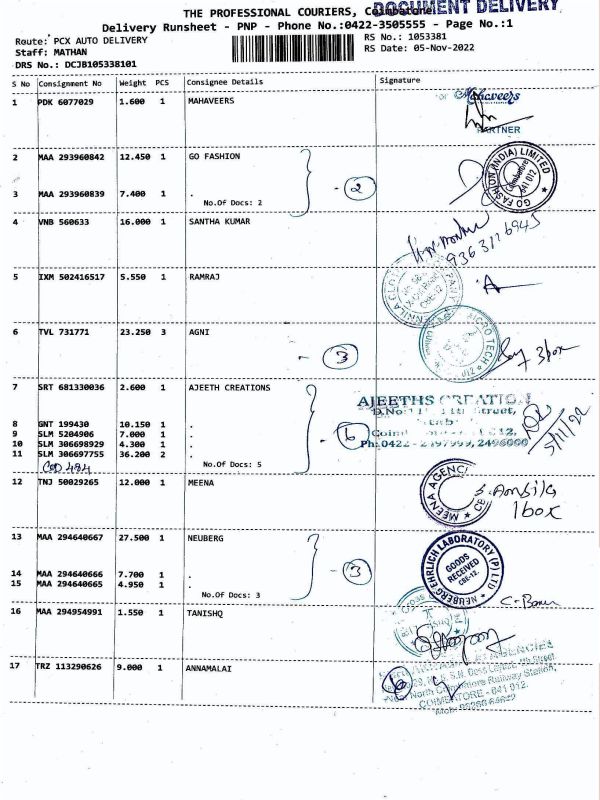 DOCUMENT DELIVERY
THE PROFESSIONAL COURIERS, Coimbatore
Delivery Runsheet - PNP - Phone No.:0422-3505555 - Page No.:1
Route: PCX AUTO DELIVERY
Staff: MATHAN
DRS No.: DCJB105338101
RS No.: 1053381
RS Date: 05-Nov-2022
S No Consignment No Weight PCS Consignee Details Signature
1 PDK 6077029 1.600 1 MAHAVEERS
Mahaveers
PARTNER
2 MAA 293960842 12.450 1 GO FASHION
3 MAA 293960839 7.400 1 .
No.Of Docs: 2
- 2
GO FASHION (INDIA) LIMITED
Coimbatore
641 012
4 VNB 560633 16.000 1 SANTHA KUMAR
9363116945
5 IXM 502416517 5.550 1 RAMRAJ
6 TVL 731771 23.250 3 AGNI
- 3
MICRO TECH
3box
7 SRT 681330036 2.600 1 AJEETH CREATIONS
8 GNT 199430 10.150 1 .
9 SLM 5204906 7.000 1 .
10 SLM 306698929 4.300 1 .
11 SLM 306697755 36.200 2 .
No.Of Docs: 5
COD 484
- 6
AJEETHS CREATION
Street,
5/11/22
12 TNJ 50029265 12.000 1 MEENA
MEENA AGENC
1box
13 MAA 294640667 27.500 1 NEUBERG
14 MAA 294640666 7.700 1 .
15 MAA 294640665 4.950 1 .
No.Of Docs: 3
- 3
NEUBERG EHRLICH LABORATORY (P) LTD
GOODS
RECEIVED
CBE-12.
16 MAA 294954991 1.550 1 TANISHQ
17 TRZ 113290626 9.000 1 ANNAMALAI
AGENCIES
Railway Station,
COIMBATORE - 641 012.